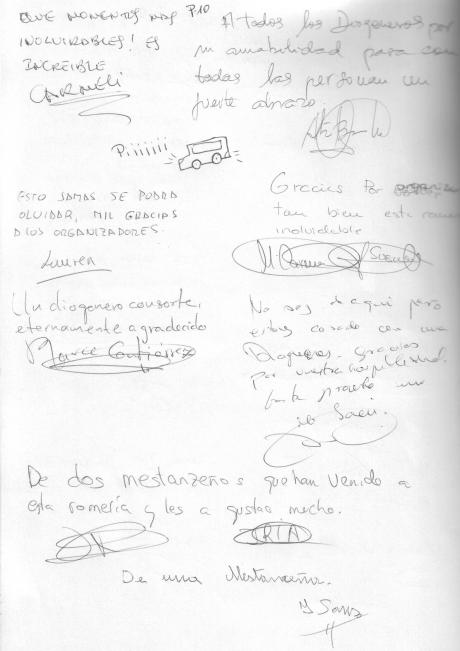 QUE MOMENTOS MAS
INOLVIDABLES! ES
INCREIBLE
CARMELI
P10
A todos los Diogeneros por
su amabilidad para con
todas las personas un
fuerte abrazo.
Piiiiiii
ESTO JAMAS SE PODRA
OLVIDAR, MIL GRACIAS
A LOS ORGANIZADORES.
Lauren
Gracias Por
tan bien esta
inolvidable
Un diogenero consorte,
eternamente agradecido
Gutiérrez
No soy de aqui pero
estoy casado con una
gracias
Por vuestra
un
De dos mestanzeños que han venido a
esta romería y les a gustao mucho.
RIA
De una Mestanzeña.